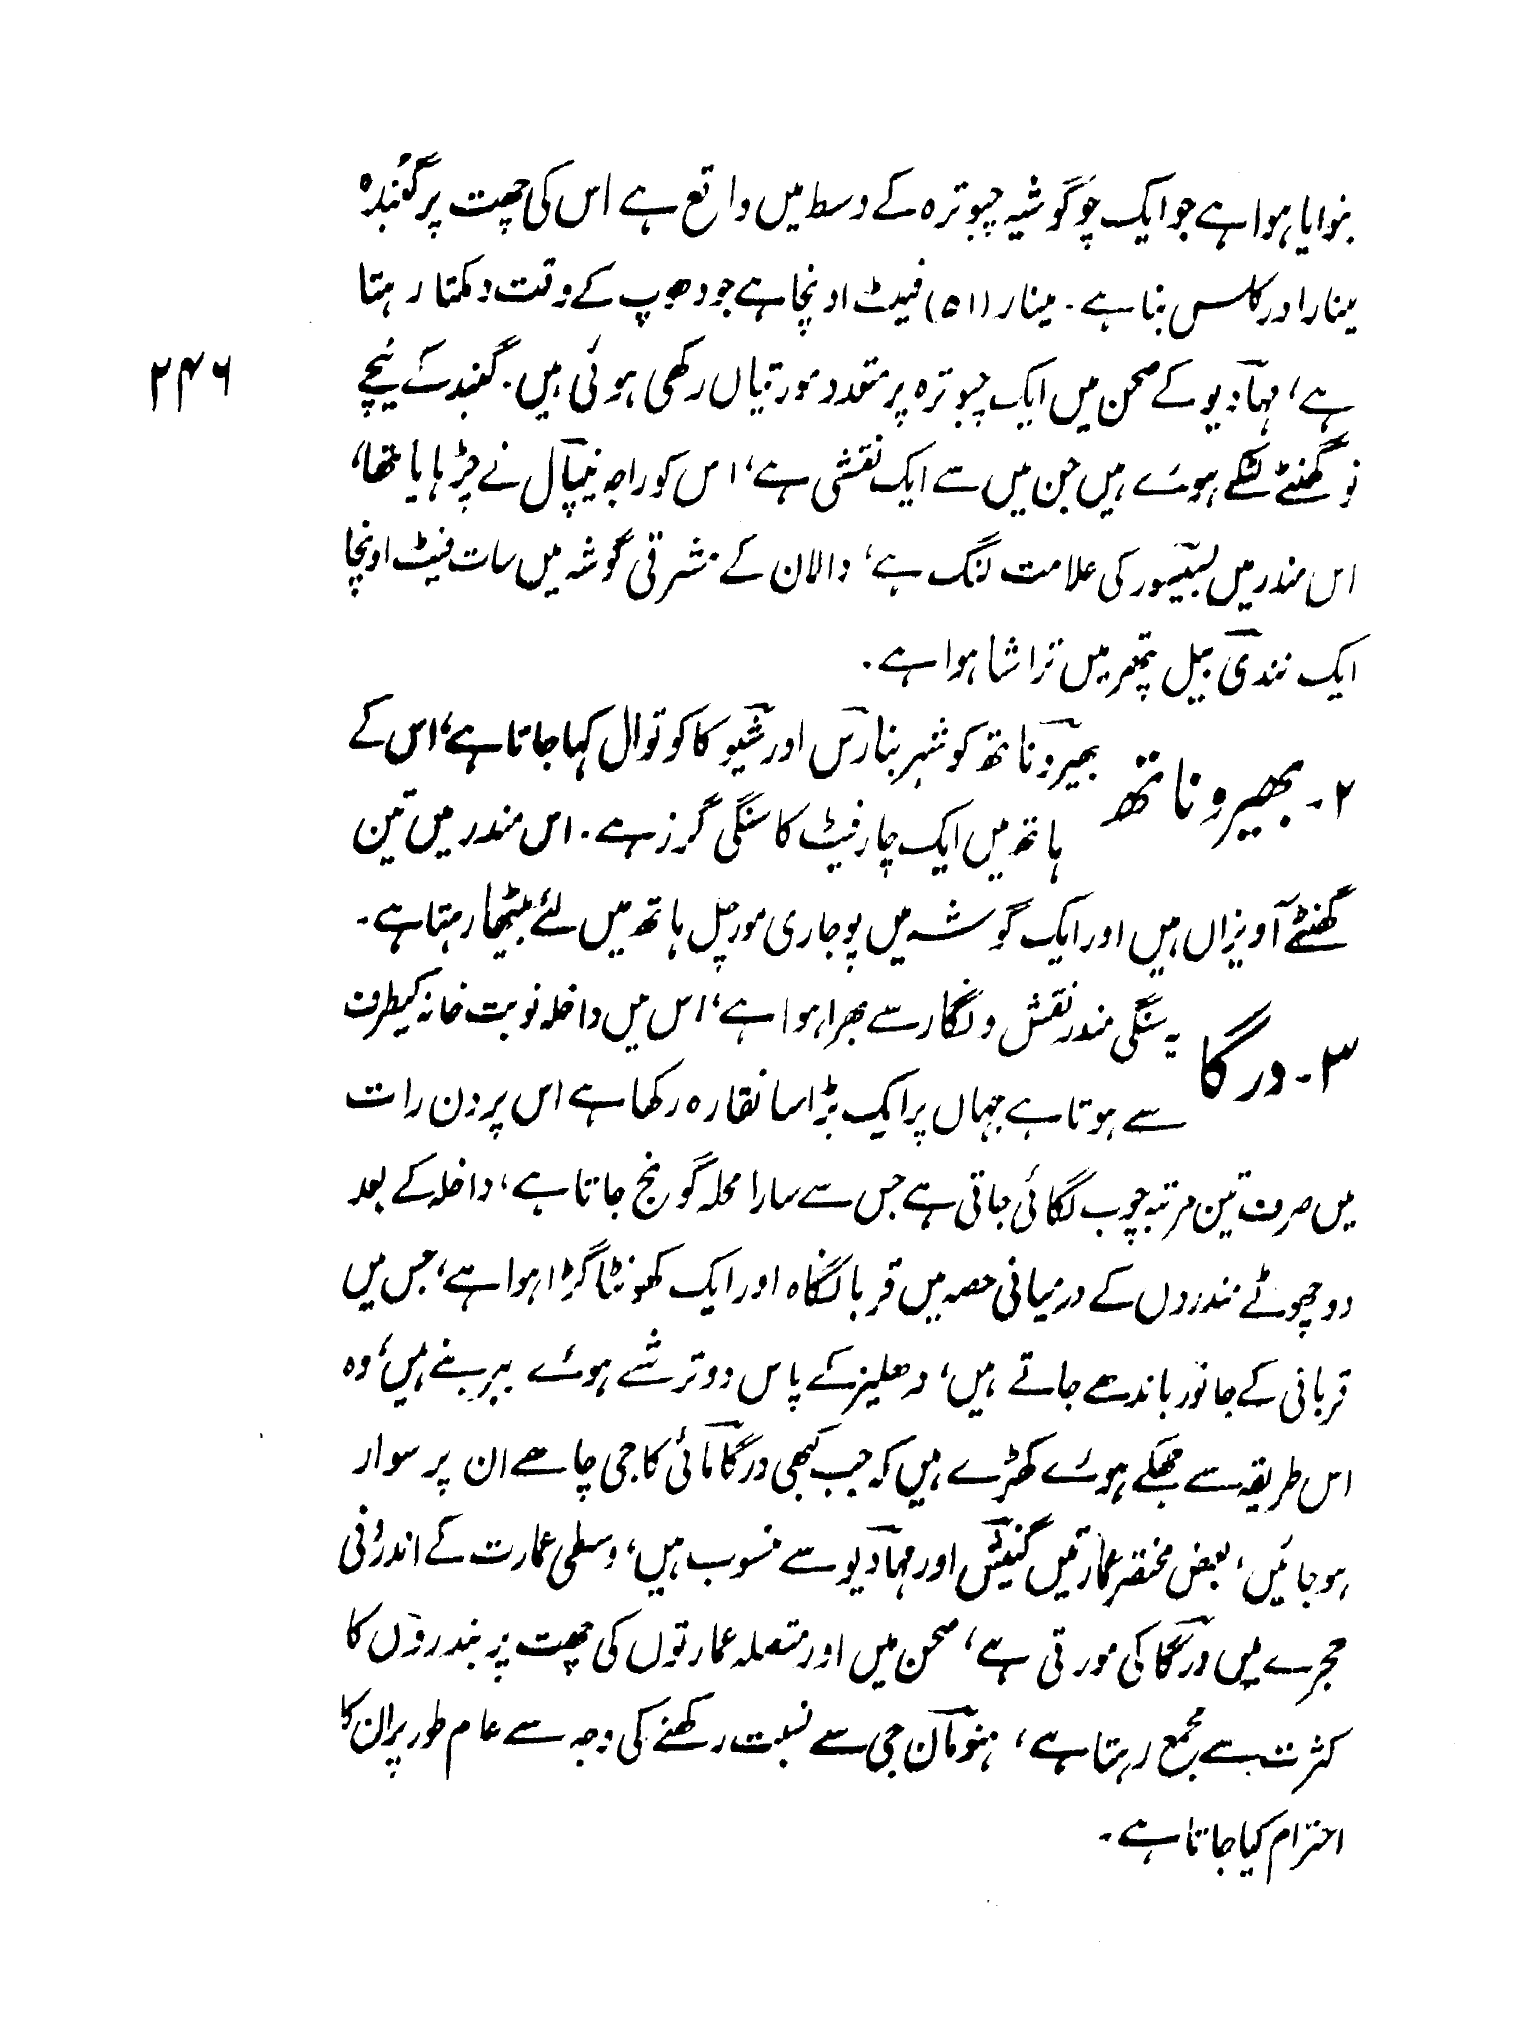 بنوایا ہوا ہے جو ایک چوگوشیہ چبوترہ کے وسط میں واقع ہے اس کی چھت پر گنبد،
مینار اور کلس بنا ہے۔ مینار (۵۱) فیٹ اونچا ہے جو دھوپ کے وقت دمکتا رہتا
ہے، مہادیو کے صحن میں ایک چبوترہ پر متعدد مورتیاں رکھی ہوئی ہیں۔ گنبد کے نیچے
۲۴۶
نو گھنٹے لٹکے ہوئے ہیں جن میں سے ایک نقشی ہے، اس کو راجہ نیپال نے چڑہایا تھا،
اس مندر میں بسیسور کی علامت لنگ ہے، دالان کے مشرقی گوشہ میں سات فیٹ اونچا
ایک نندی بیل پتھر میں تراشا ہوا ہے۔
۲۔ بھیروناتھ بھیروناتھ کو شہر بنارس اور شیو کا کوتوال کہا جاتا ہے، اس کے
ہاتھ میں ایک چار فیٹ کا سنگی گرز ہے۔ اس مندر میں تین
گھنٹے آویزاں ہیں اور ایک گوشہ میں پوجاری مورچل ہاتھ میں لئے بیٹھا رہتا ہے۔
۳۔ درگا یہ سنگی مندر نقش و نگار سے بھرا ہوا ہے، اس میں داخلہ نوبت خانہ کیطرف
سے ہوتا ہے جہاں پر ایک بڑا سا نقارہ رکھا ہے اس پر دن رات
میں صرف تین مرتبہ چوب لگائی جاتی ہے جس سے سارا محلہ گونج جاتا ہے، داخلہ کے بعد
دو چھوٹے مندروں کے درمیانی حصہ میں قربانگاہ اور ایک کھونٹا گڑا ہوا ہے، جس میں
قربانی کے جانور باندھے جاتے ہیں، دھلیز کے پاس دو ترشے ہوئے ببر بنے ہیں، وہ
اس طریقہ سے جھکے ہوئے کھڑے ہیں کہ جب کبھی درگا مائی کا جی چاھے ان پر سوار
ہو جائیں، بعض مختصر عمارتیں گنیش اور مہادیو سے منسوب ہیں، وسطی عمارت کے اندرونی
حجرے میں درگا کی مورتی ہے، صحن میں اور متصلہ عمارتوں کی چھت پر بندروں کا
کثرت سے مجمع رہتا ہے، ہنومان جی سے نسبت رکھنے کی وجہ سے عام طور پر ان کا
احترام کیا جاتا ہے۔